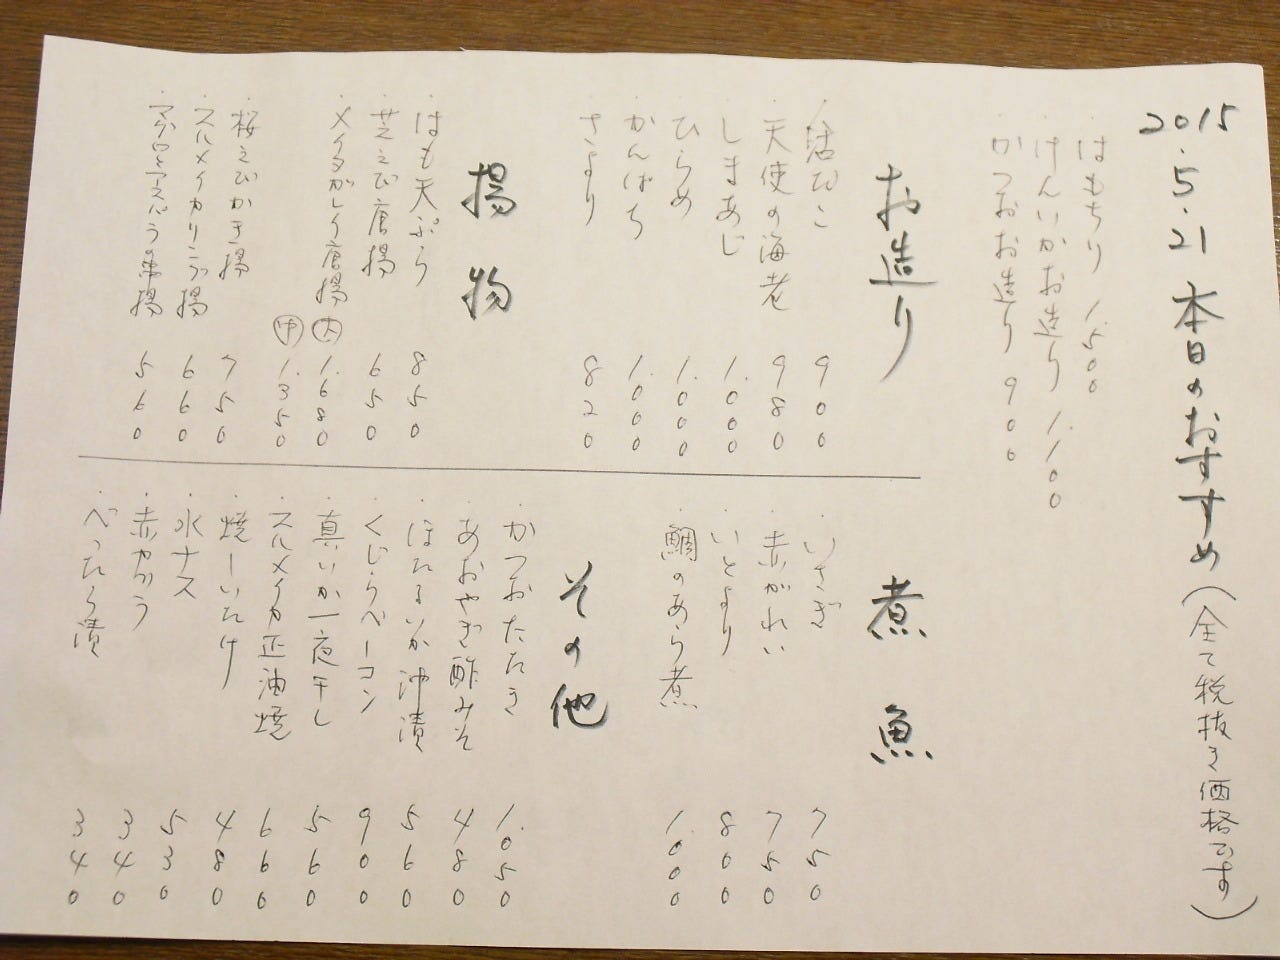 2015.5.21 本日のおすすめ(全て税抜き価格です)
はもちり 1.500
けんいかお造り 1.100
かつおお造り 900
お造り
・活だこ 900
・天使の海老 980
・しまあじ 1.000
・ひらめ 1.000
・かんぱち 1.000
・さより 820
揚物
・はも天ぷら 850
・芝えび唐揚 650
・メイタがれイ唐揚 大 1.680
中 1.350
・桜えびかき揚 750
・スルメイカリング揚 660
・マグロとアスパラの串揚 560
煮魚
・いさぎ 750
・赤がれい 750
・いとより 800
・鯛のあら煮 1.000
その他
・かつおたたき 1.050
・あおやぎ酢みそ 480
・ほたるいか沖漬 560
・くじらベーコン 900
・真いか一夜干し 560
・スルメイカ正油焼 660
・焼しいたけ 480
・水ナス 530
・赤かぶ 340
・べったら漬 340